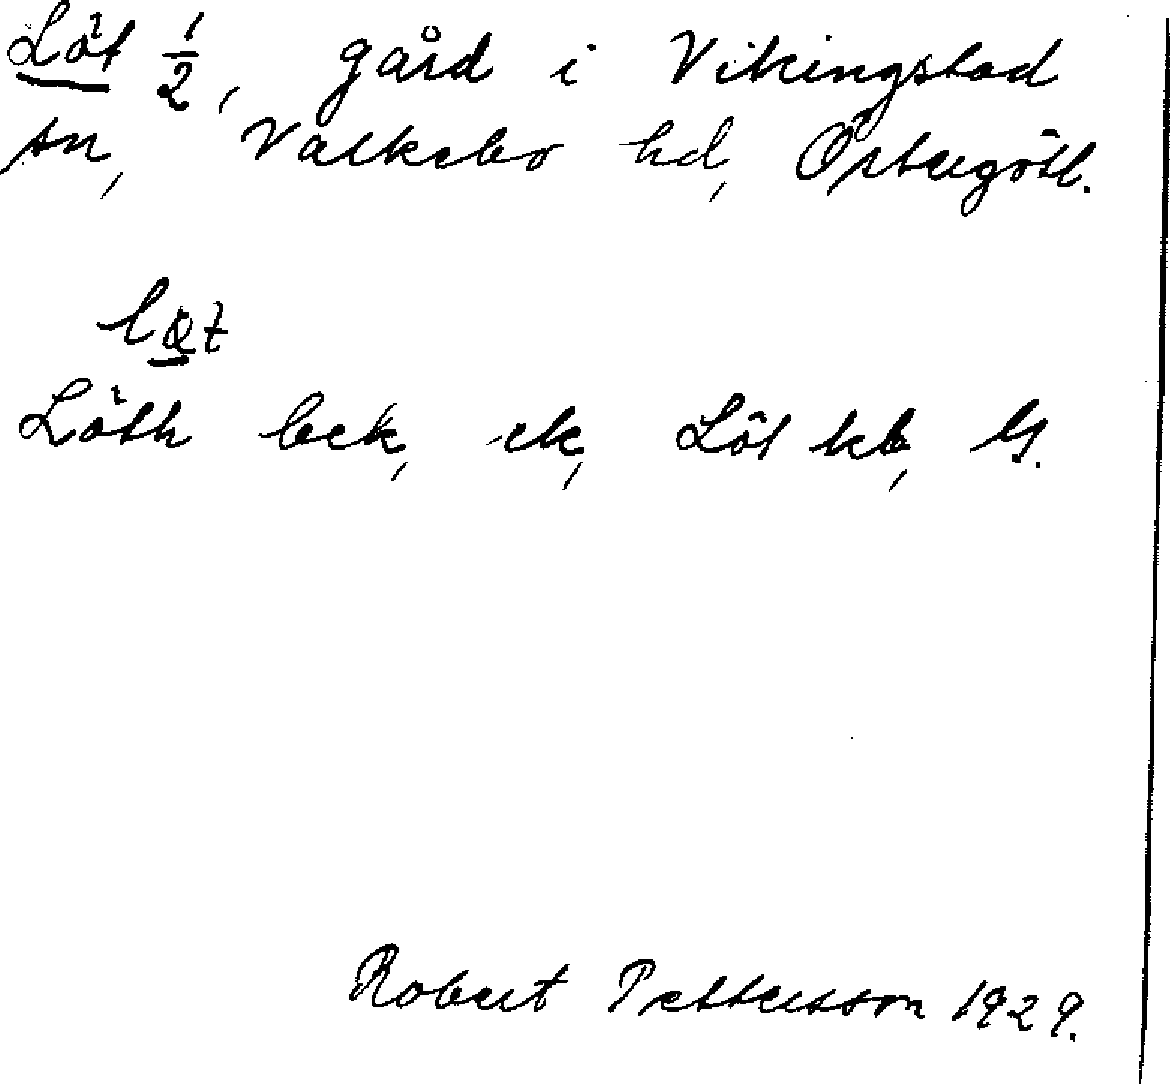 Löt ½, gård i Vikingstad
sn, Valkebo hd, Östergötl.
Löth bek, ek, Löt kb,
Robert Pettersson 1929.